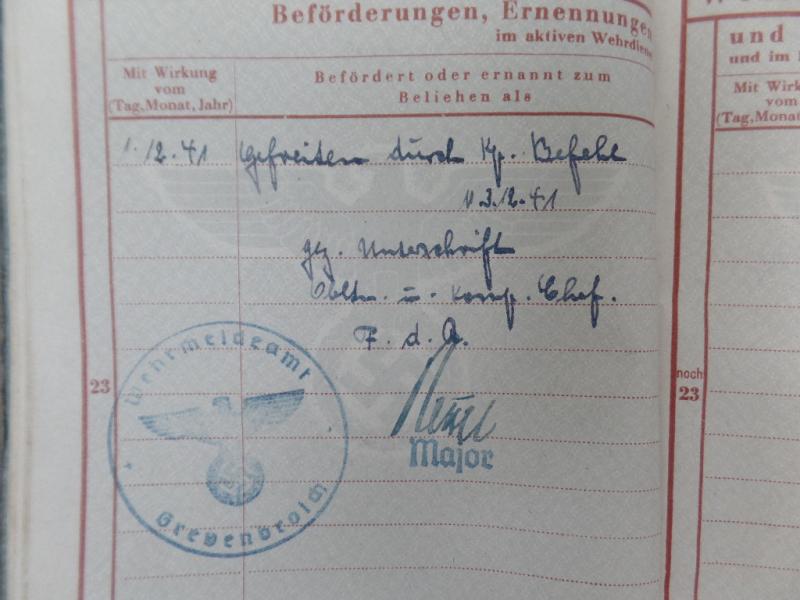 Beförderungen, Ernennungen
im aktiven Wehrdiens
Mit Wirkung
vom
(Tag, Monat, Jahr)
Befördert oder ernannt zum
Beliehen als
1.12.41 Gefreiten durch Kp. Befehl
v 3.12.41
gez. Unterschrift
Obltn. u. Komp. Chef.
F. d. A.
Major
23
Wehrmeldeamt
Grevenbroich
und
und im
Mit Wirk
vom
(Tag, Monat
noch
23